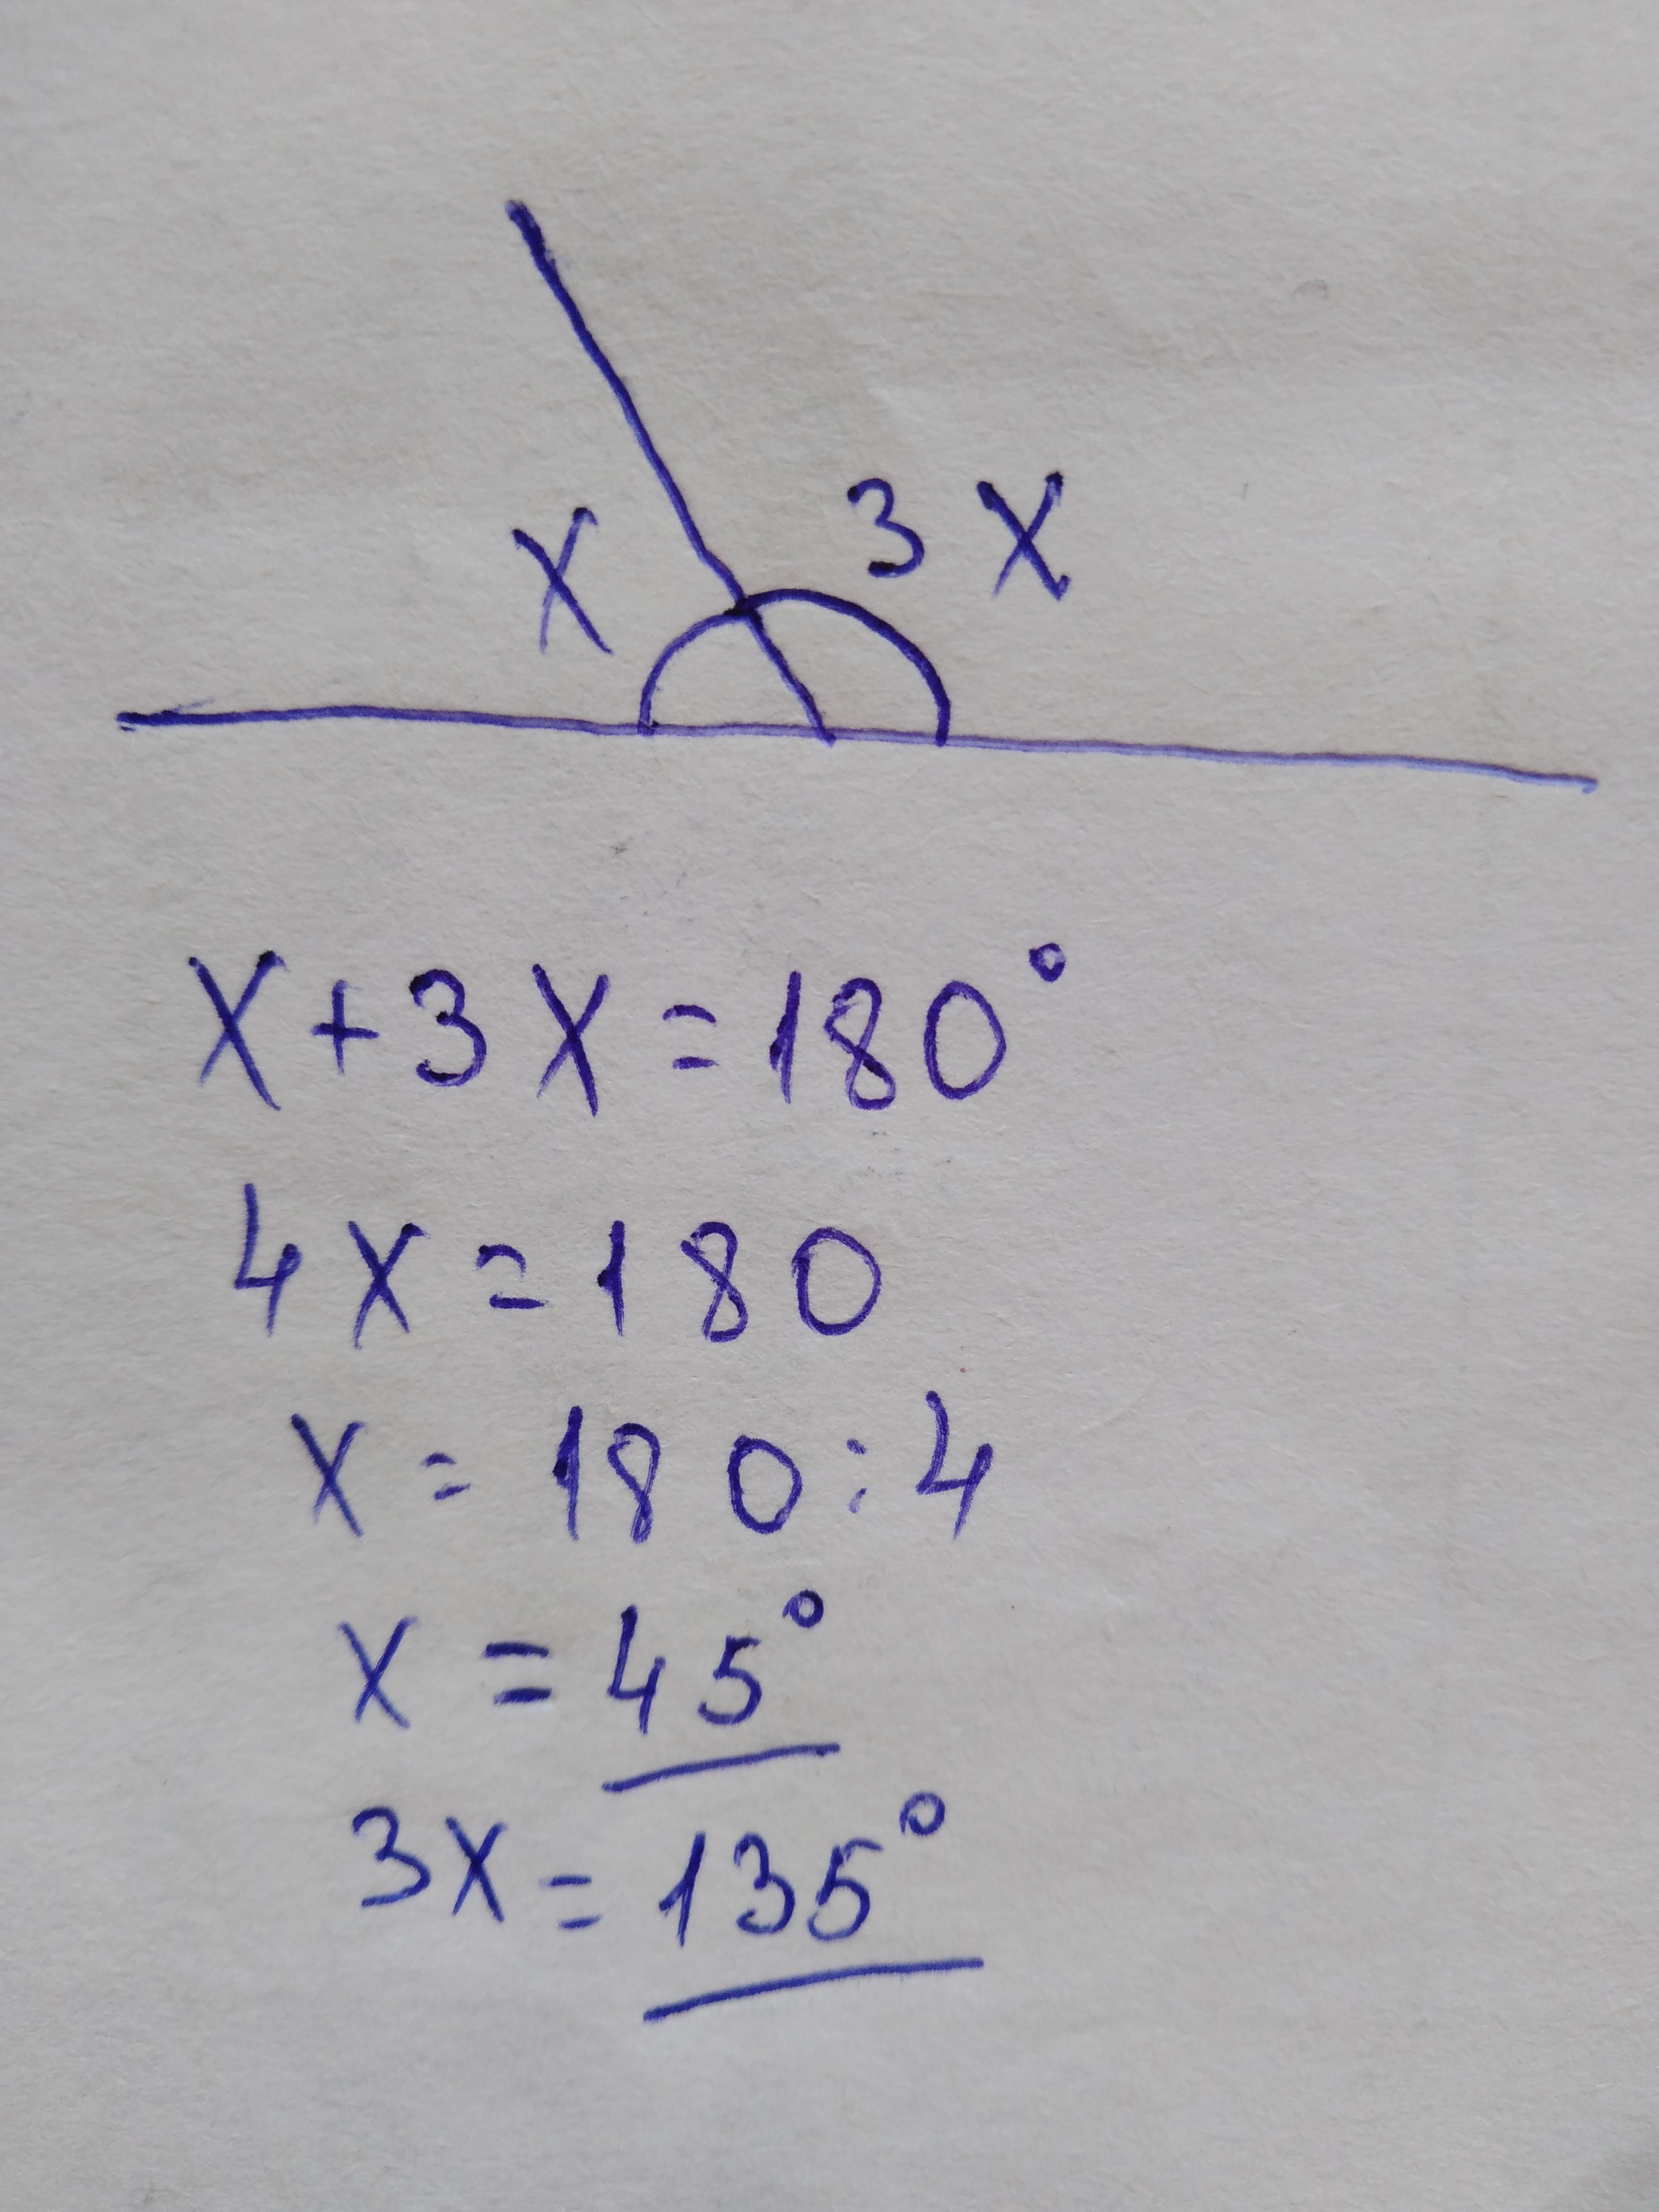 x 3x
x+3x=180°
4x=180
x=180:4
x=45°
3x=135°